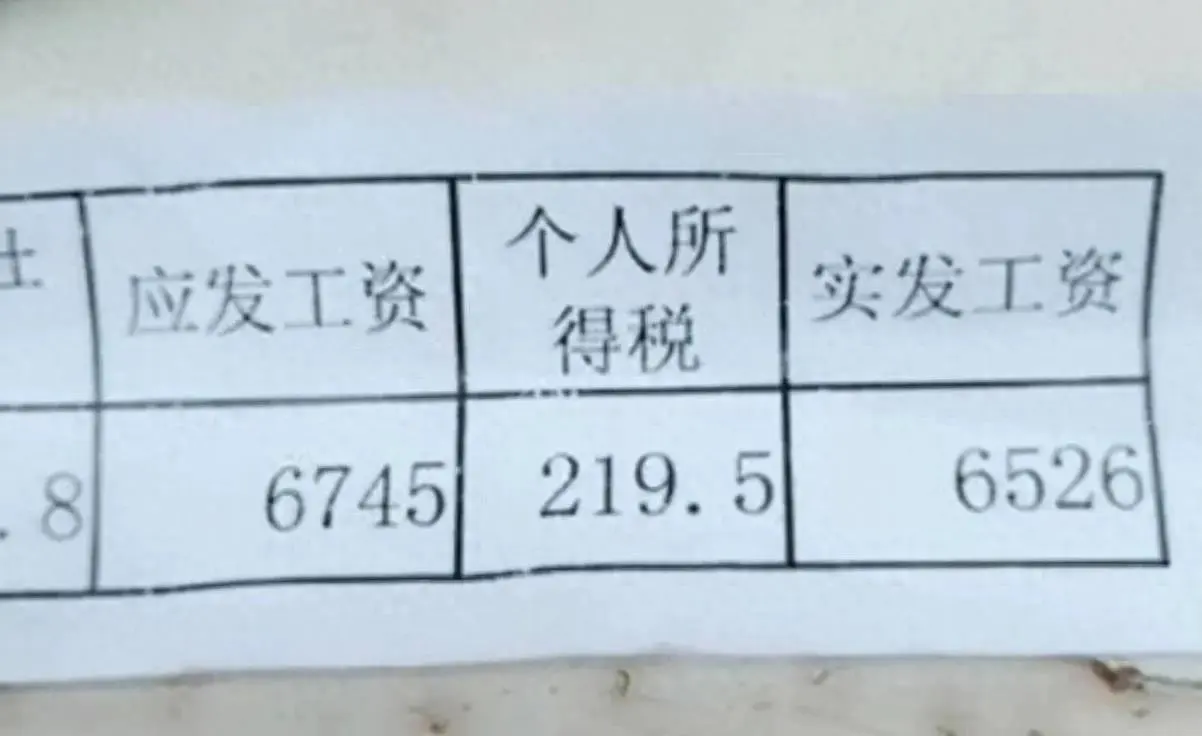 社
应发工资
个人所
得税
实发工资
.8
6745
219.5
6526